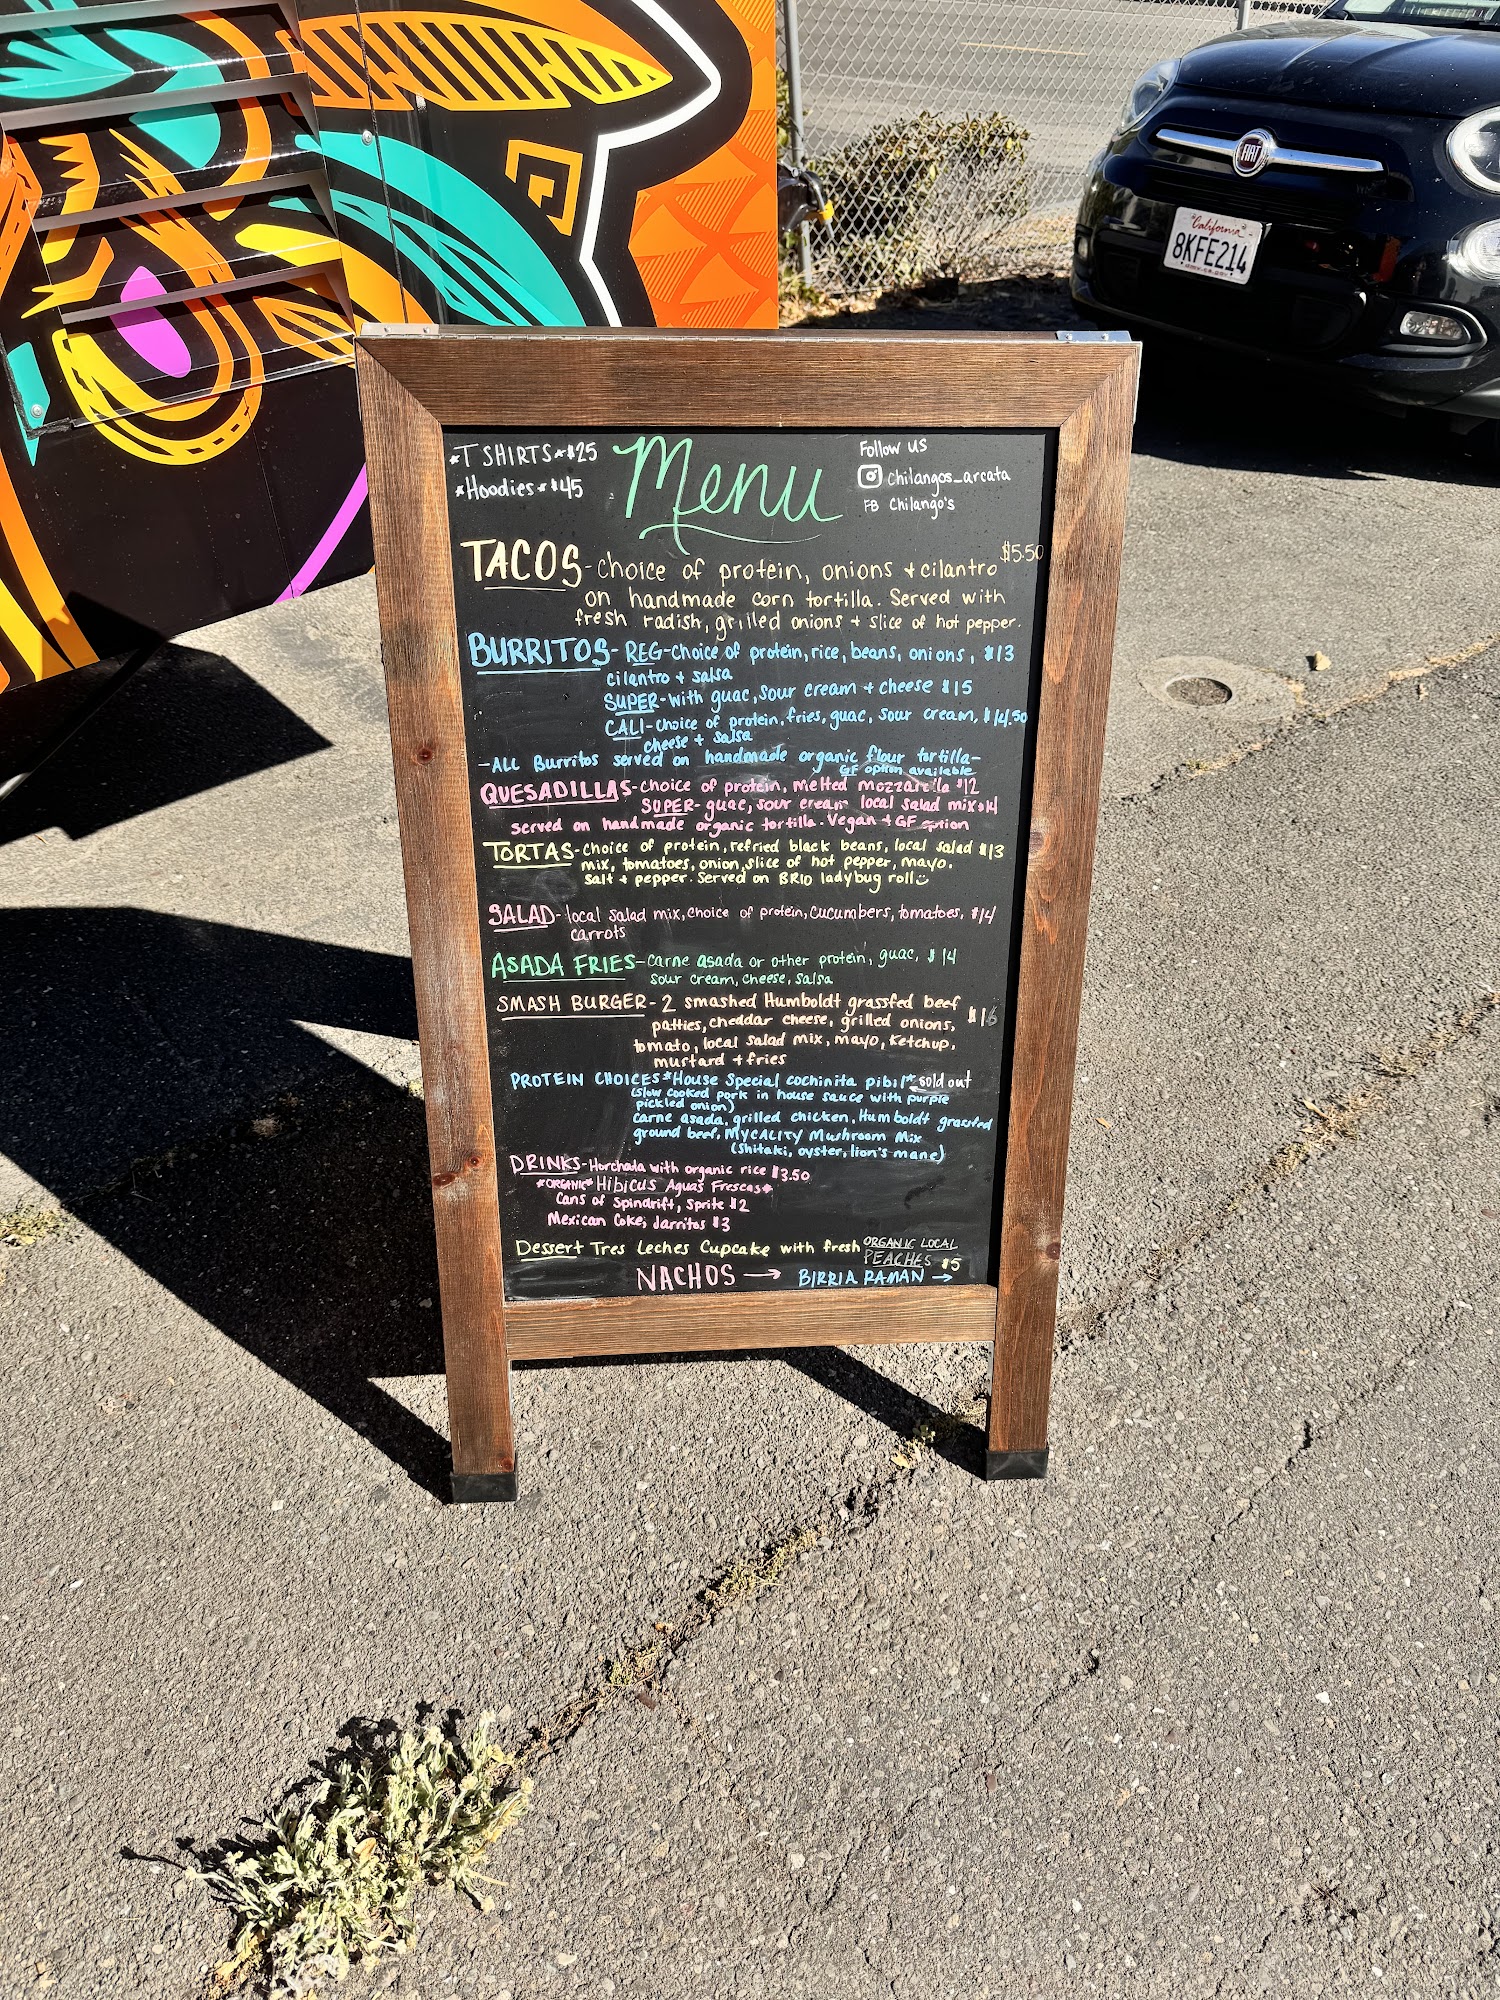 California
8KFE214
FIAT
*T SHIRTS*$25
*Hoodies*$45
Menu
Follow us
chilangos_arcata
FB Chilango's
TACOS-choice of protein, onions + cilantro $5.50
on handmade corn tortilla. Served with
fresh radish, grilled onions + slice of hot pepper.
BURRITOS- REG-choice of protein, rice, beans, onions, $13
cilantro + salsa
SUPER-with guac, sour cream + cheese $15
CALI-choice of protein, fries, guac, sour cream, $14.50
cheese + salsa
-ALL Burritos served on handmade organic flour tortilla-
GF option available
QUESADILLAS-choice of protein, melted mozzarella $12
SUPER- guac, sour cream local salad mix $14
served on handmade organic tortilla. Vegan + GF option
TORTAS-choice of protein, refried black beans, local salad $13
mix, tomatoes, onion, slice of hot pepper, mayo.
salt + pepper. Served on BRIO ladybug roll
SALAD-local salad mix, choice of protein, cucumbers, tomatoes, $14
carrots
ASADA FRIES-carne asada or other protein, guac, $14
sour cream, cheese, salsa
SMASH BURGER- 2 smashed Humboldt grassfed beef
patties, cheddar cheese, grilled onions, $16
tomato, local salad mix, mayo, ketchup,
mustard + fries
PROTEIN CHOICES*House Special cochinita pibil* sold out
(slow cooked pork in house sauce with purple
pickled onion)
carne asada, grilled chicken, Humboldt grassfed
ground beef, MYCALITY Mushroom Mix
(shitaki, oyster, lion's mane)
DRINKS-Horchada with organic rice $3.50
*ORGANIC* Hibicus Aguas Frescas*
Cans of Spindrift, Sprite $2
Mexican Coke, Jarritos $3
Dessert Tres Leches Cupcake with fresh ORGANIC LOCAL
PEACHES $5
NACHOS → BIRRIA RAMAN →